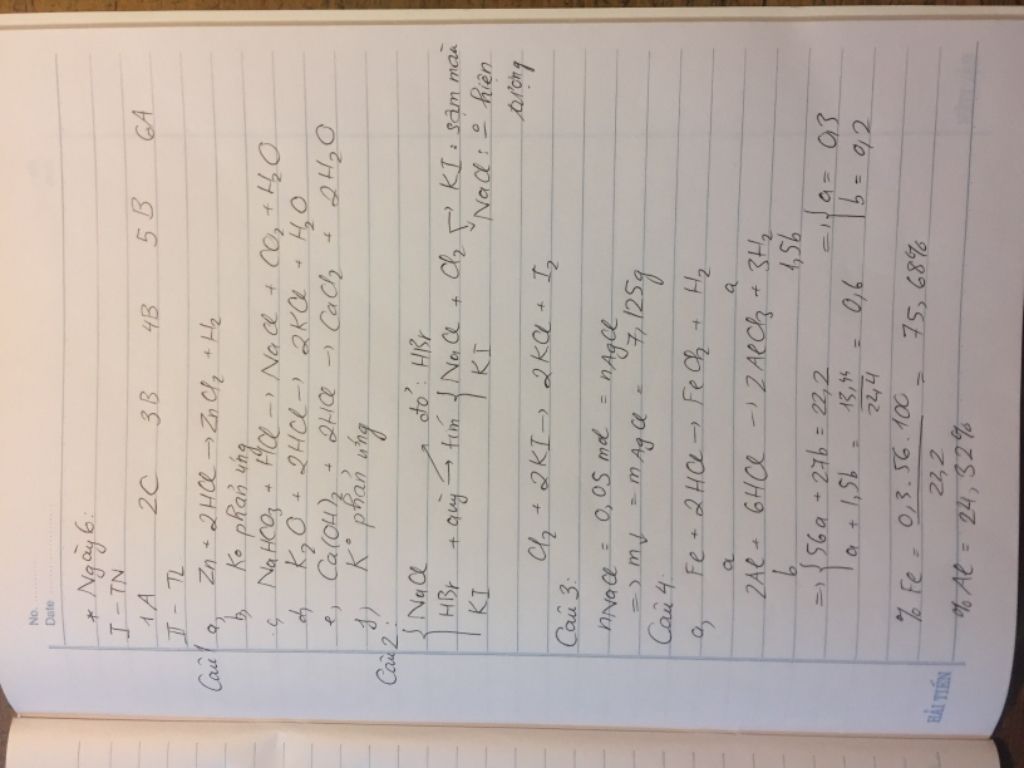 No.
Date
* Ngày 6:
I - TN
1A 2C 3B 4B 5B 6A
II - TL
Câu 1 a, Zn + 2HCl → ZnCl₂ + H₂
b, K° phản ứng
c, NaHCO₃ + HCl → NaCl + CO₂ + H₂O
d, K₂O + 2HCl → 2KCl + H₂O
e, Ca(OH)₂ + 2HCl → CaCl₂ + 2H₂O
f, K° phản ứng
Câu 2:
{ NaCl
HBr + quỳ → đỏ: HBr
KI → tím { NaCl + Cl₂ → KI: sậm màu
KI NaCl: ° hiện tượng
Cl₂ + 2KI → 2KCl + I₂
Câu 3:
nNaCl = 0,05 mol = nAgCl
=> m↓ = mAgCl = 7,125g
Câu 4:
a, Fe + 2HCl → FeCl₂ + H₂
a a
2Al + 6HCl → 2AlCl₃ + 3H₂
b 1,5b
=> { 56a + 27b = 22,2 => { a = 0,3
a + 1,5b = 13,44/22,4 = 0,6 b = 0,2
% Fe = 0,3.56.100/22,2 = 75,68%
% Al = 24,32%
HẢI TIẾN